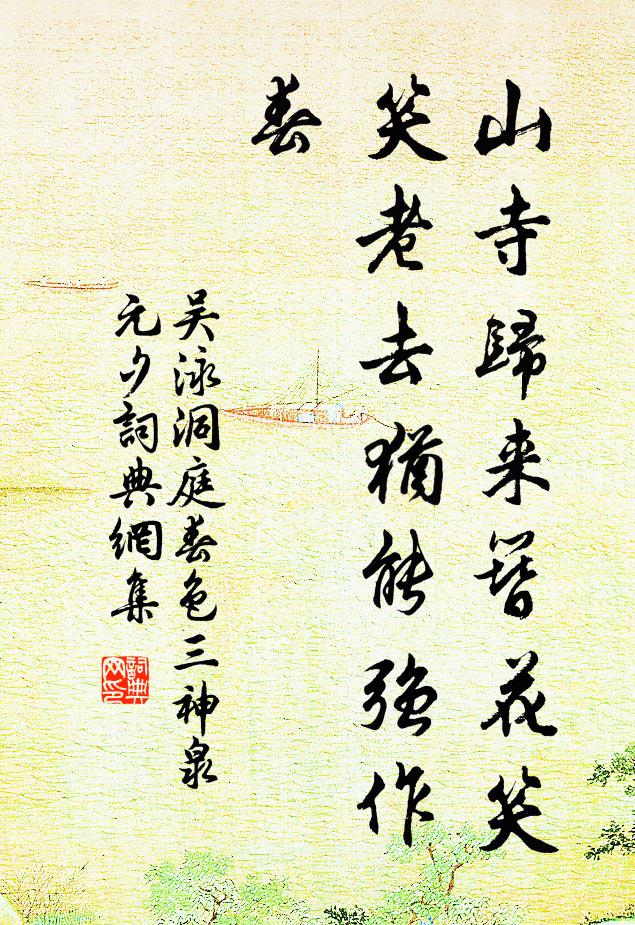 山寺歸来簪花笑
笑老去猶能強作
春
吴泳洞庭春色三神泉
元夕詞典網集
詞典网印